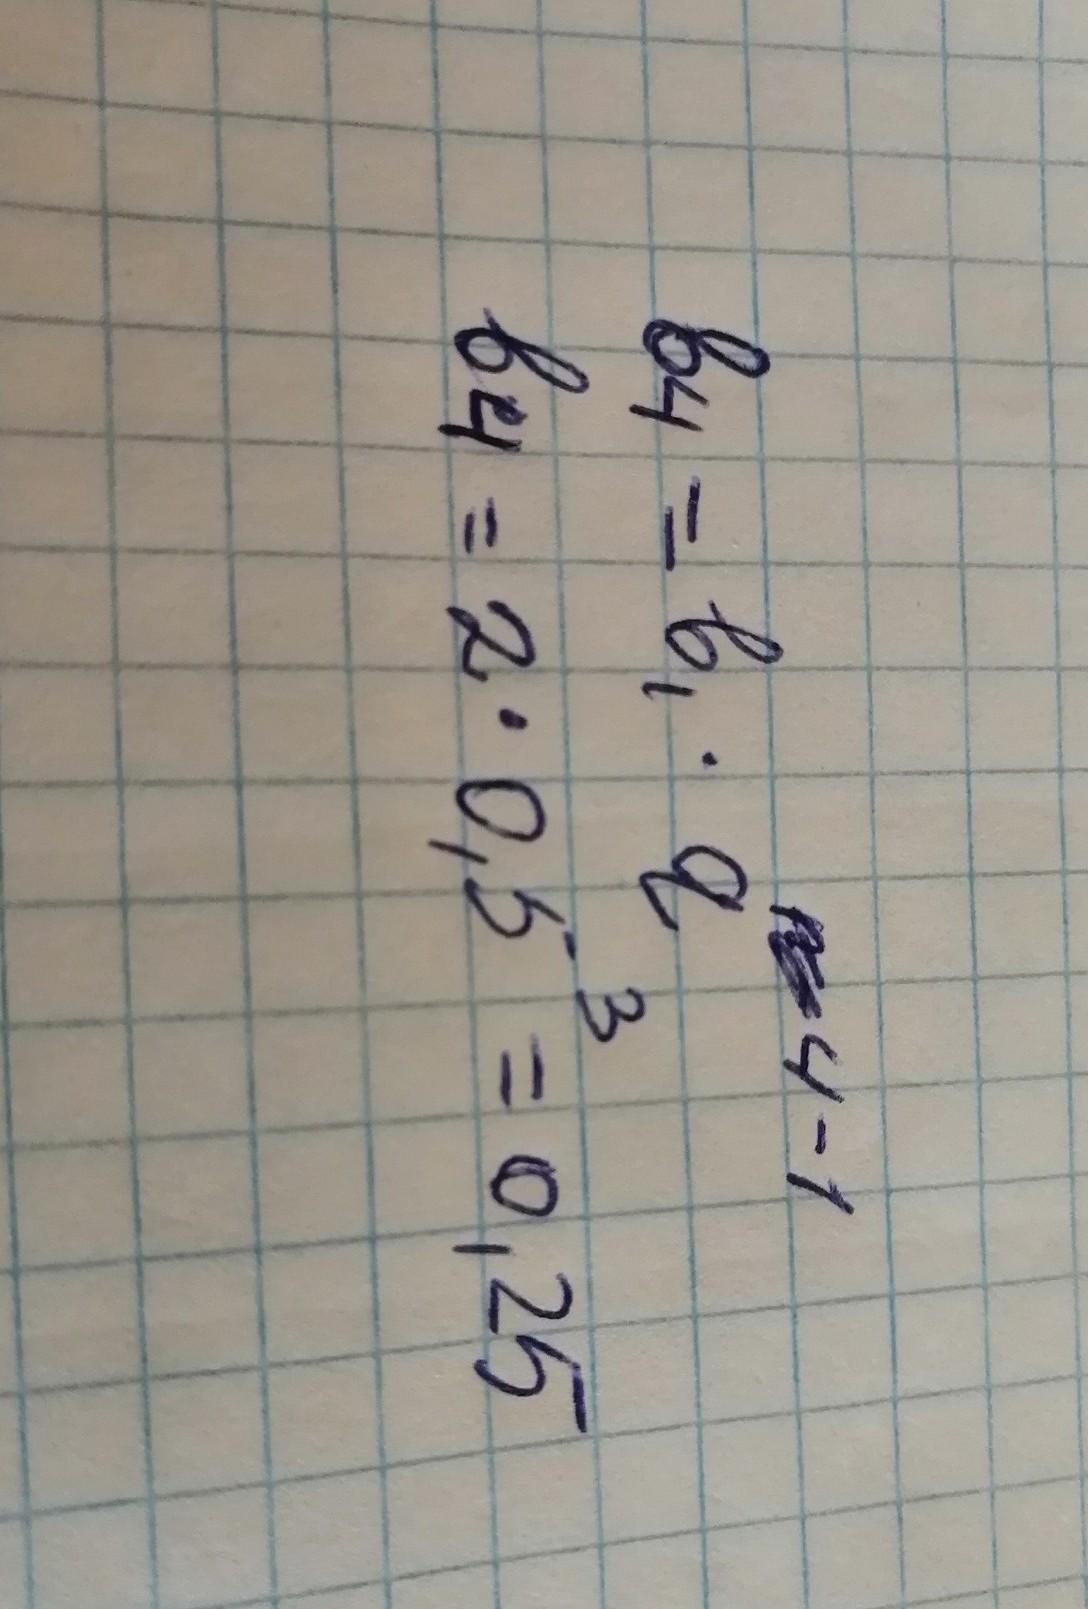 b₄ = b₁ · q⁴⁻¹
b₄ = 2 · 0,5³ = 0,25